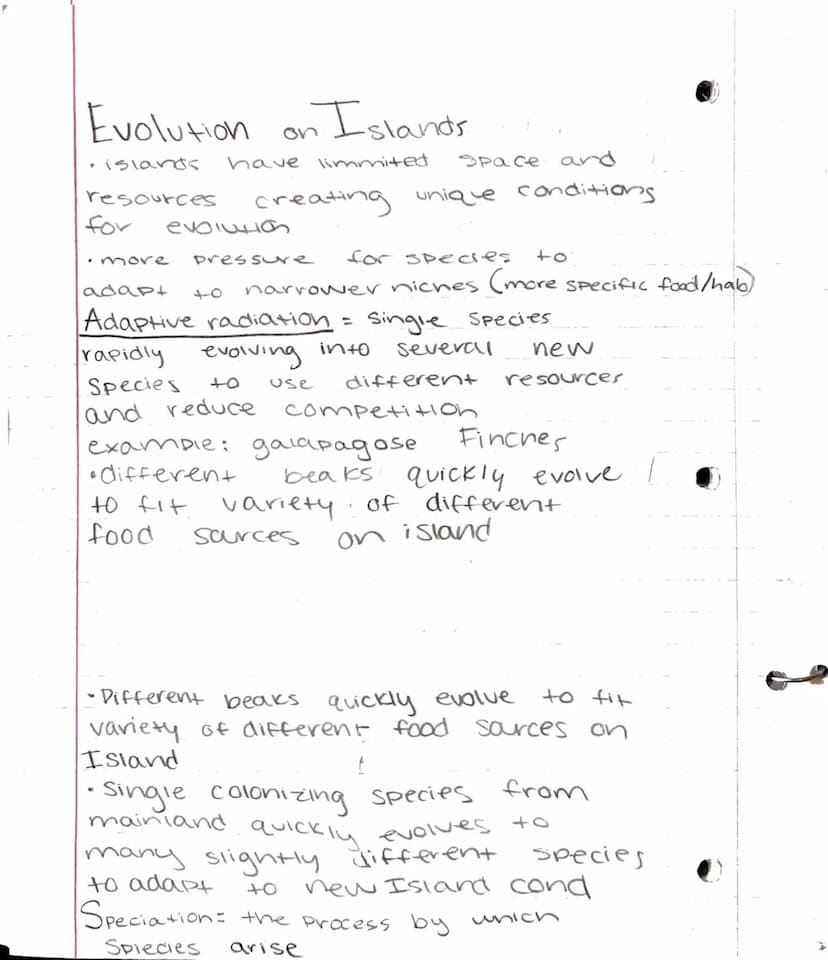 Evolution on Islands
• islands have limmited space and
resources creating unique conditions
for evolution
• more pressure for species to
adapt to narrower niches (more specific food/hab)
Adaptive radiation = single species
rapidly evolving into several new
species to use different resources
and reduce competition
example: galapagose Finches
• different beaks quickly evolve
to fit variety of different
food sarces on island
• Different beaks quickly evolve to fit
variety of different food sarces on
Island
• Single colonizing species from
mainland quickly evolves to
many slightly different species
to adapt to new Island cond
Speciation = the process by which
Spiecies arise